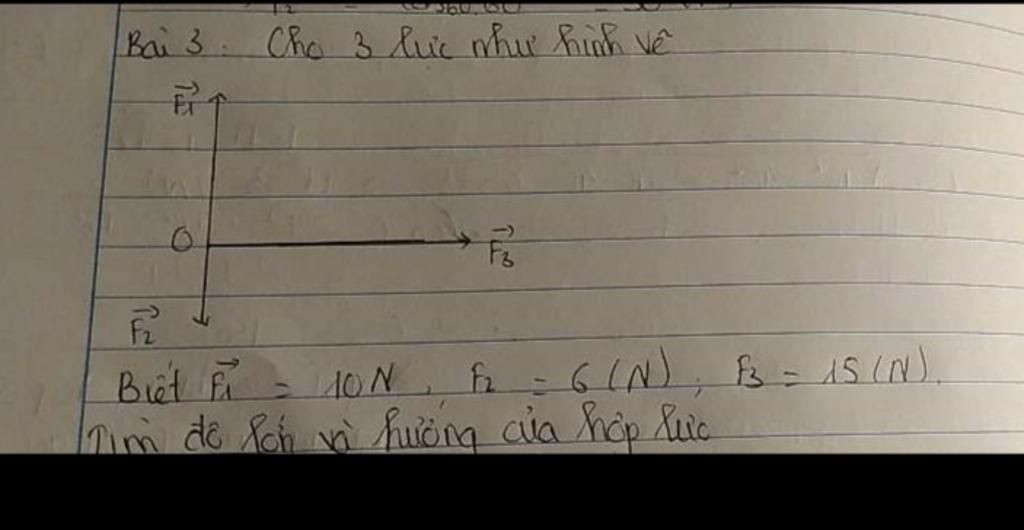 Bài 3: Cho 3 lực như hình vẽ
F₁→
O
F₃→
F₂→
Biết F₁→ = 10N, F₂ = 6 (N), F₃ = 15 (N).
Tìm độ lớn và hướng của hợp lực